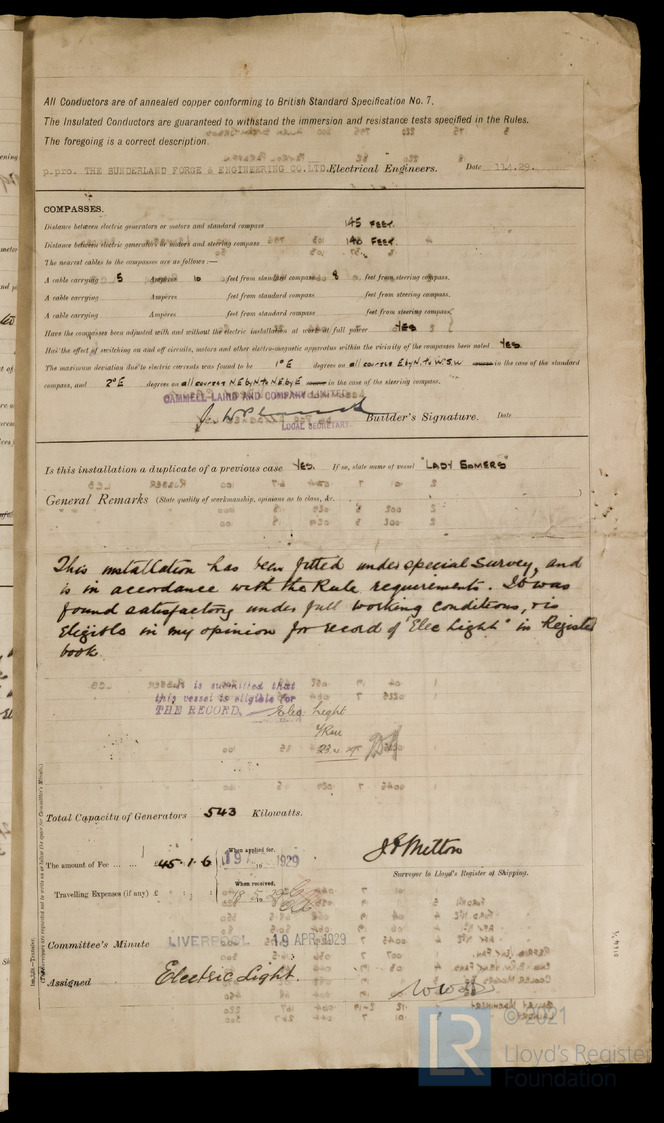 All Conductors are of annealed copper conforming to British Standard Specification No. 7.
The Insulated Conductors are guaranteed to withstand the immersion and resistance tests specified in the Rules.
The foregoing is a correct description.
p.pro. THE SUNDERLAND FORGE & ENGINEERING CO.LTD. Electrical Engineers. Date 11.4.29.
COMPASSES.
Distance between electric generators or motors and standard compass 145 FEET.
Distance between electric generators or motors and steering compass 140 FEET.
The nearest cables to the compasses are as follows:—
A cable carrying 5 Ampères 10 feet from standard compass 8 feet from steering compass.
A cable carrying Ampères feet from standard compass feet from steering compass.
A cable carrying Ampères feet from standard compass feet from steering compass.
Have the compasses been adjusted with and without the electric installation at work at full power YES
Has the effect of switching on and off circuits, motors and other electro-magnetic apparatus within the vicinity of the compasses been noted YES.
The maximum deviation due to electric currents was found to be 1° E degrees on all courses E by N. to W.S.W. course in the case of the standard
compass, and 2° E degrees on all courses N.E. by N. to N.E. by E course in the case of the steering compass.
CAMMELL LAIRD AND COMPANY LIMITED
Builder's Signature. Date
LOCAL SECRETARY.
Is this installation a duplicate of a previous case YES. If so, state name of vessel "LADY SOMERS"
General Remarks (State quality of workmanship, opinions as to class, &c.
This installation has been fitted under special Survey, and
is in accordance with the Rule requirements. It was
found satisfactory under full working conditions, & is
Eligible in my opinion for record of "Elec Light" in Register
book
It is submitted that
this vessel is eligible for
THE RECORD. Elec. Light
Total Capacity of Generators 543 Kilowatts.
The amount of Fee ... ... £45.1.6 When applied for, 19 1929
J F Mitton
Surveyor to Lloyd's Register of Shipping.
Travelling Expenses (if any) £ : : When received,
Committee's Minute LIVERPOOL 19 APR 1929
Assigned Electric Light.
© 2021
LR Lloyd's Register
Foundation